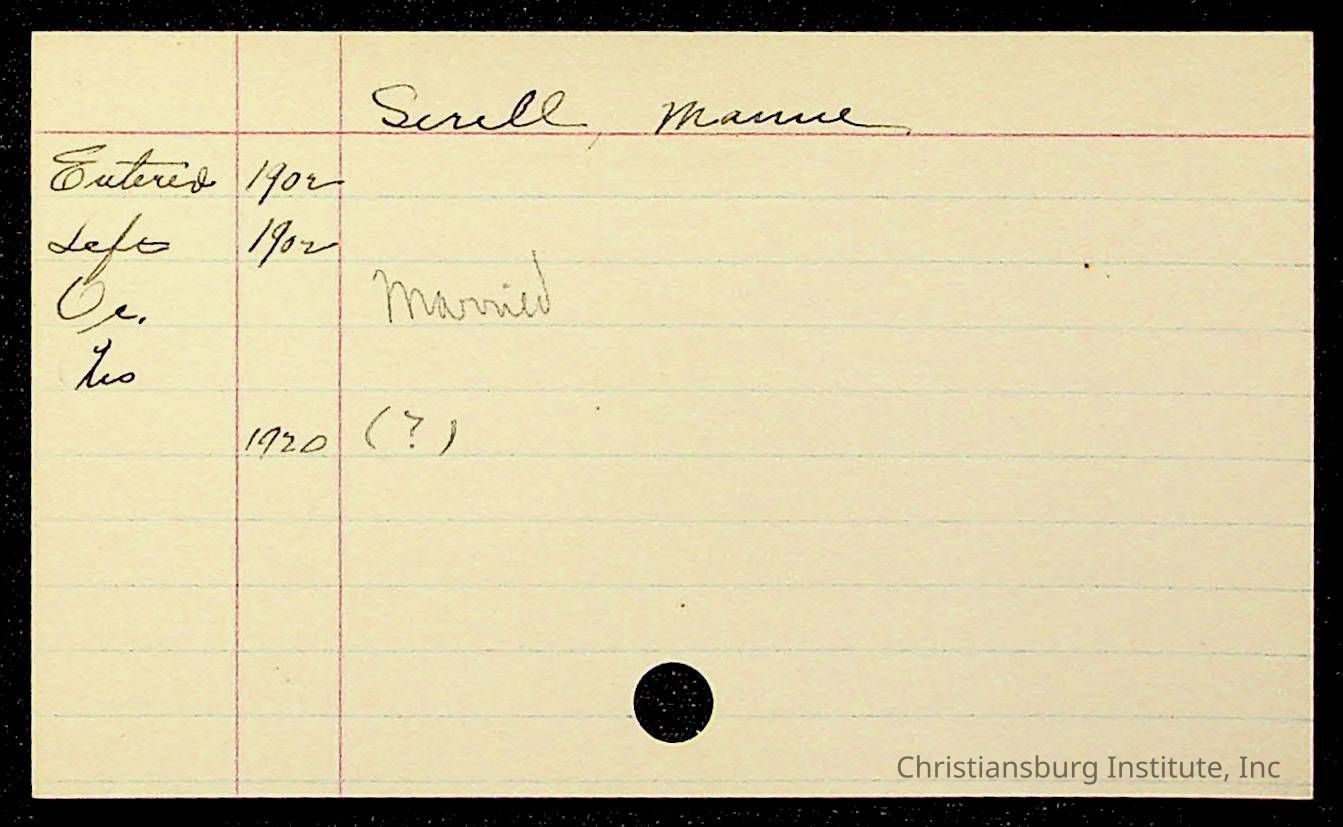 Serell, Mamie
Entered 1902
Left 1902
Oc. Married
No
1920 (?)
Christiansburg Institute, Inc